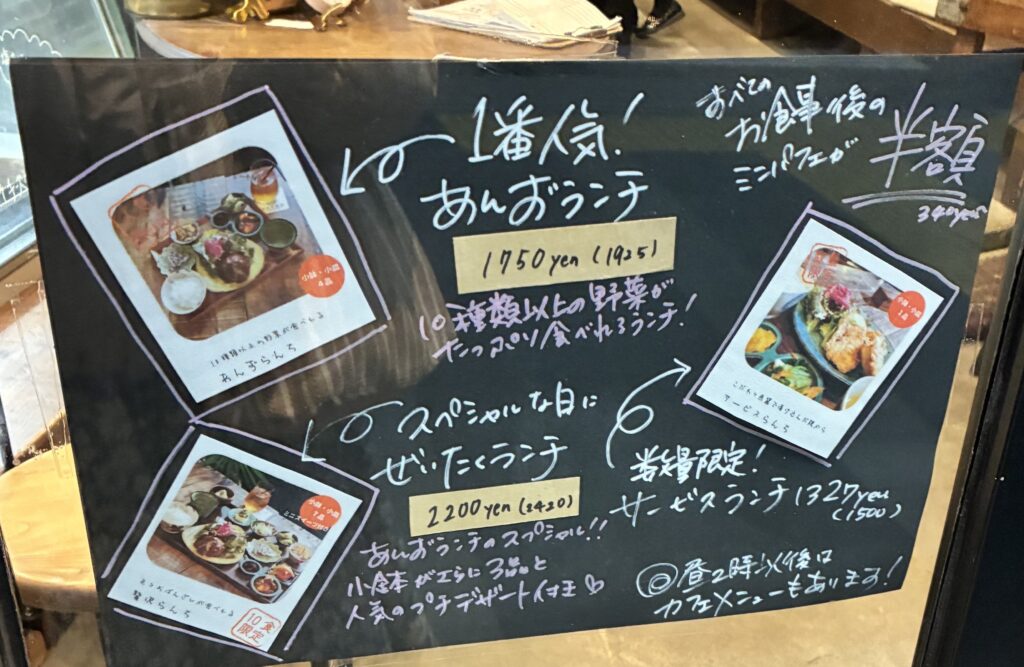 1番人気!
あんずランチ
1750yen (1925)
10種類以上の野菜が
たっぷり食べれるランチ!
すべての
お食事後の
ミニパフェが
半額
340yen
小鉢・小皿
4品
10種類以上の野菜が食べれる
あんずらんち
スペシャルな日に
ぜいたくランチ
2200yen (2420)
あんずランチのスペシャル!!
小鉢がさらに3品と
人気のプチデザート付き♡
小鉢・小皿
7品
ミニスイーツ付き
贅沢らんち
10食
限定
小鉢・小皿
2品
サービスらんち
数量限定!
サービスランチ1327yen
(1500)
◎昼2時以後は
カフェメニューもあります!